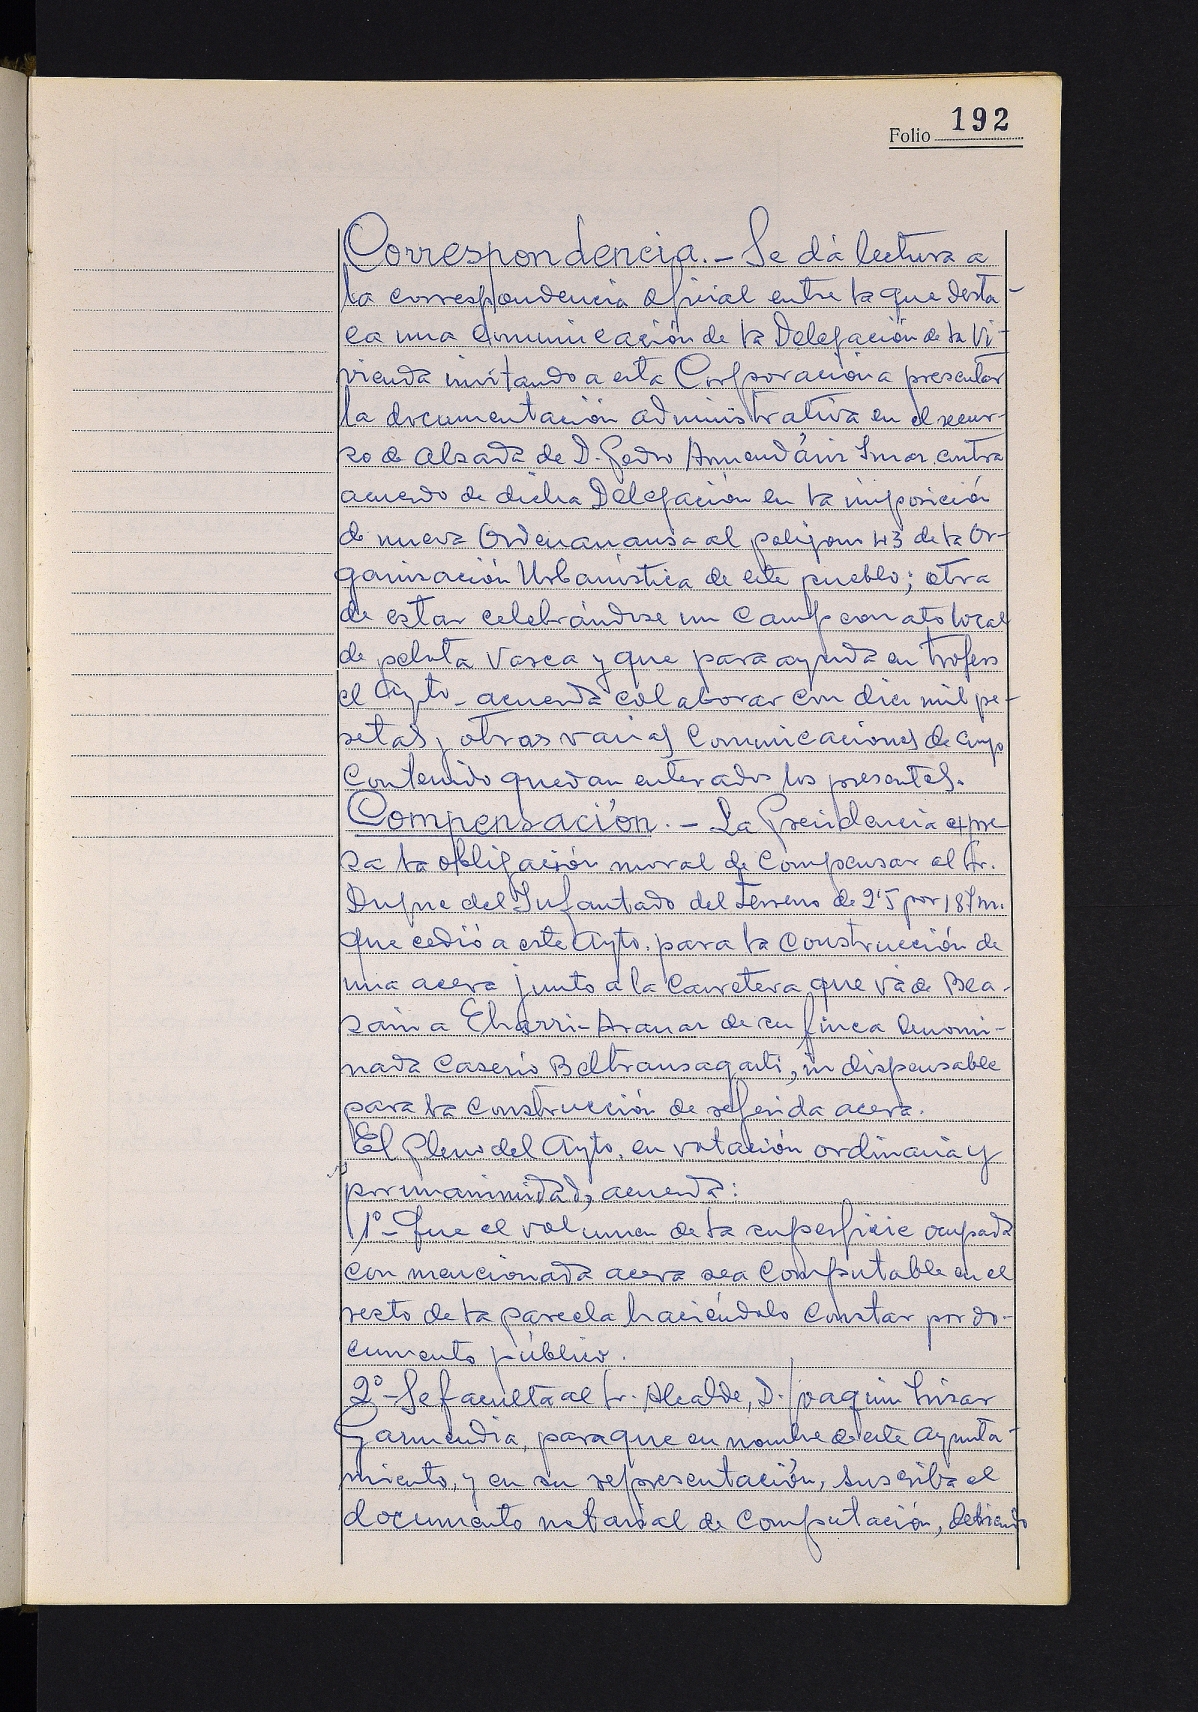 Folio 192
Correspondencia.- Se dá lectura a
la correspondencia oficial entre la que desta-
ca una comunicación de la Delegación de la Vi-
vienda invitando a esta Corporación a presentar
la documentación administrativa en el recur-
so de alzada de D. Pedro Armendáriz contra
acuerdo de dicha Delegación en la imposición
de nueva Ordenananza al poligono 43 de la Or-
ganización Urbanística de este pueblo; otra
de estar celebrándose un Campeonato local
de pelota vasca y que para ayuda en trofeos
el Ayto. acuerda colaborar con diez mil pe-
setas y otras varias comunicaciones de cuyo
contenido quedan enterados los presentes.
Compensación.- La Presidencia expre
sa la obligación moral de compensar al Sr.
Duque del Infantado del terreno de 2'5 por 187 m.
que cedió a este Ayto. para la construcción de
una acera junto a la carretera que vá de Bea-
sain a Echarri-Aranaz de su finca denomi-
nada Caserio Beltransagasti, indispensable
para la construcción de referida acera.
El Pleno del Ayto. en votación ordinaria y
por unanimidad, acuerda:
1º- Que el volumen de la superficie ocupada
con mencionada acera sea computable en el
resto de la parcela haciéndolo constar por do-
cumento público.
2º- Se faculta al Sr. Alcalde, D. Joaquin
Garmendia, para que en nombre de este Ayunta-
miento, y en su representación, suscriba el
documento notarial de computación, debiendo